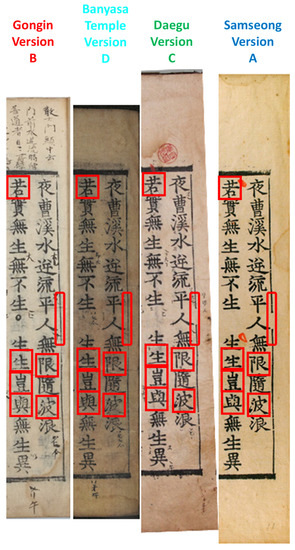 Gongin
Version
B
Banyasa
Temple
Version
D
Daegu
Version
C
Samseong
Version
A
夜曹溪水逆流平人無限隨波浪
若實無生無不生。生生豈與無生異
夜曹溪水逆流平人無限隨波浪
若實無生無不生 生生豈與無生異
夜曹溪水逆流平人無限隨波浪
若實無生無不生 生生豈與無生異
夜曹溪水逆流平人無限隨波浪
若實無生無不生 生生豈與無生異